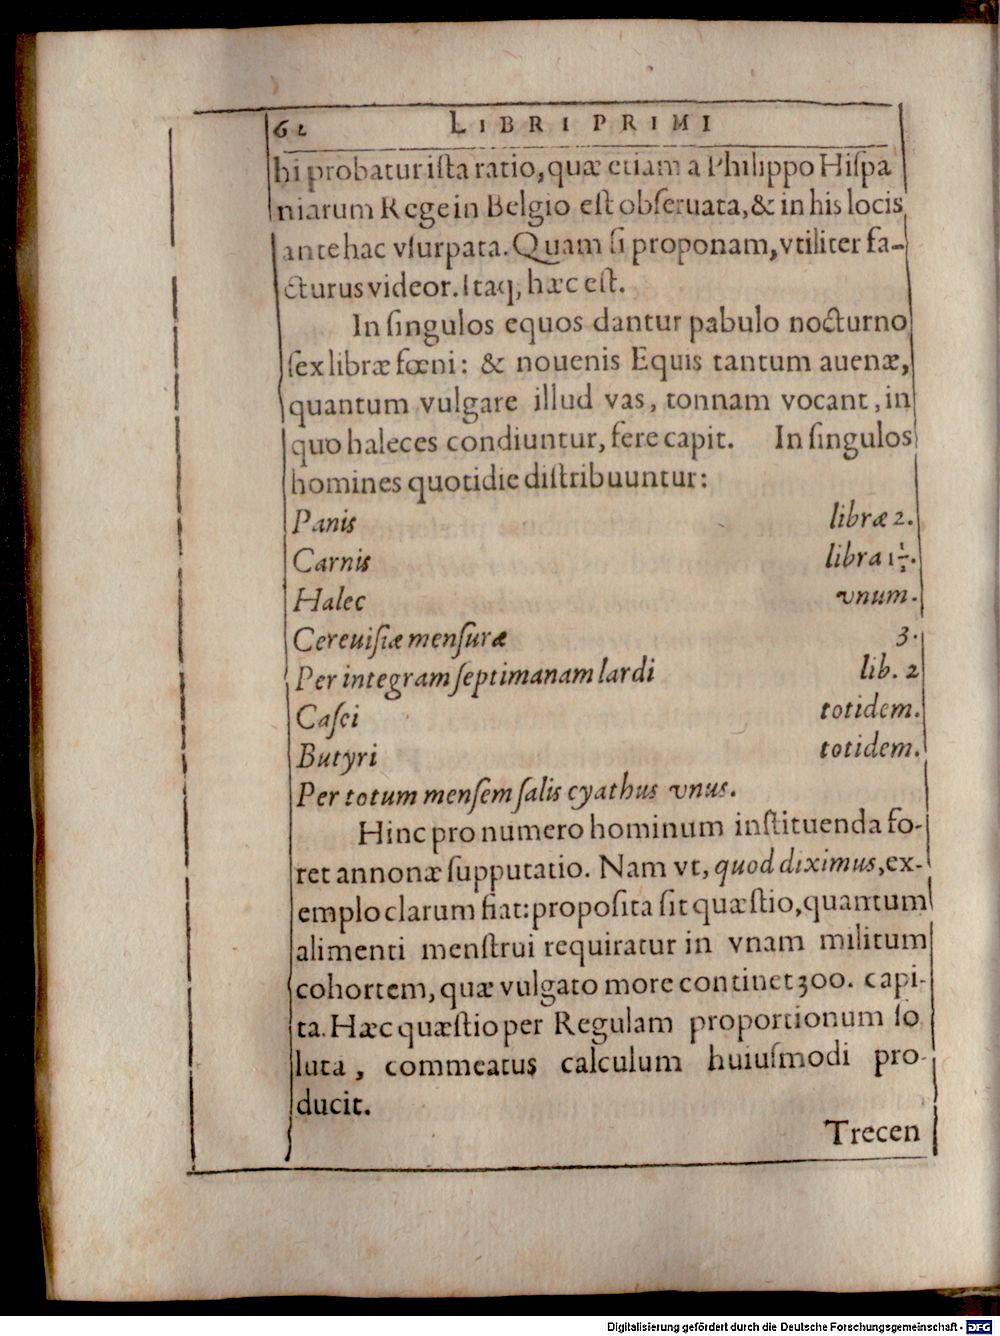 62 LIBRI PRIMI
hi probatur iſta ratio, quæ etiam a Philippo Hiſpa
niarum Rege in Belgio eſt obſeruata, & in his locis
ante hac vſurpata. Quam ſi proponam, vtiliter fa-
cturus videor. Itaq, hæc eſt.
In ſingulos equos dantur pabulo nocturno
ſex libræ fœni: & nouenis Equis tantum auenæ,
quantum vulgare illud vas, tonnam vocant, in
quo haleces condiuntur, fere capit. In ſingulos
homines quotidie diſtribuuntur:
Panis libræ 2.
Carnis libra 1½.
Halec vnum.
Cereuiſiæ menſuræ 3.
Per integram ſeptimanam lardi lib. 2
Caſei totidem.
Butyri totidem.
Per totum menſem ſalis cyathus vnus.
Hinc pro numero hominum inſtituenda fo-
ret annonæ ſupputatio. Nam vt, quod diximus, ex-
emplo clarum fiat: propoſita ſit quæſtio, quantum
alimenti menſtrui requiratur in vnam militum
cohortem, quæ vulgato more continet 300. capi-
ta. Hæc quæſtio per Regulam proportionum ſo
luta, commeatus calculum huiuſmodi pro-
ducit.
Trecen
Digitalisierung gefördert durch die Deutsche Forschungsgemeinschaft - DFG